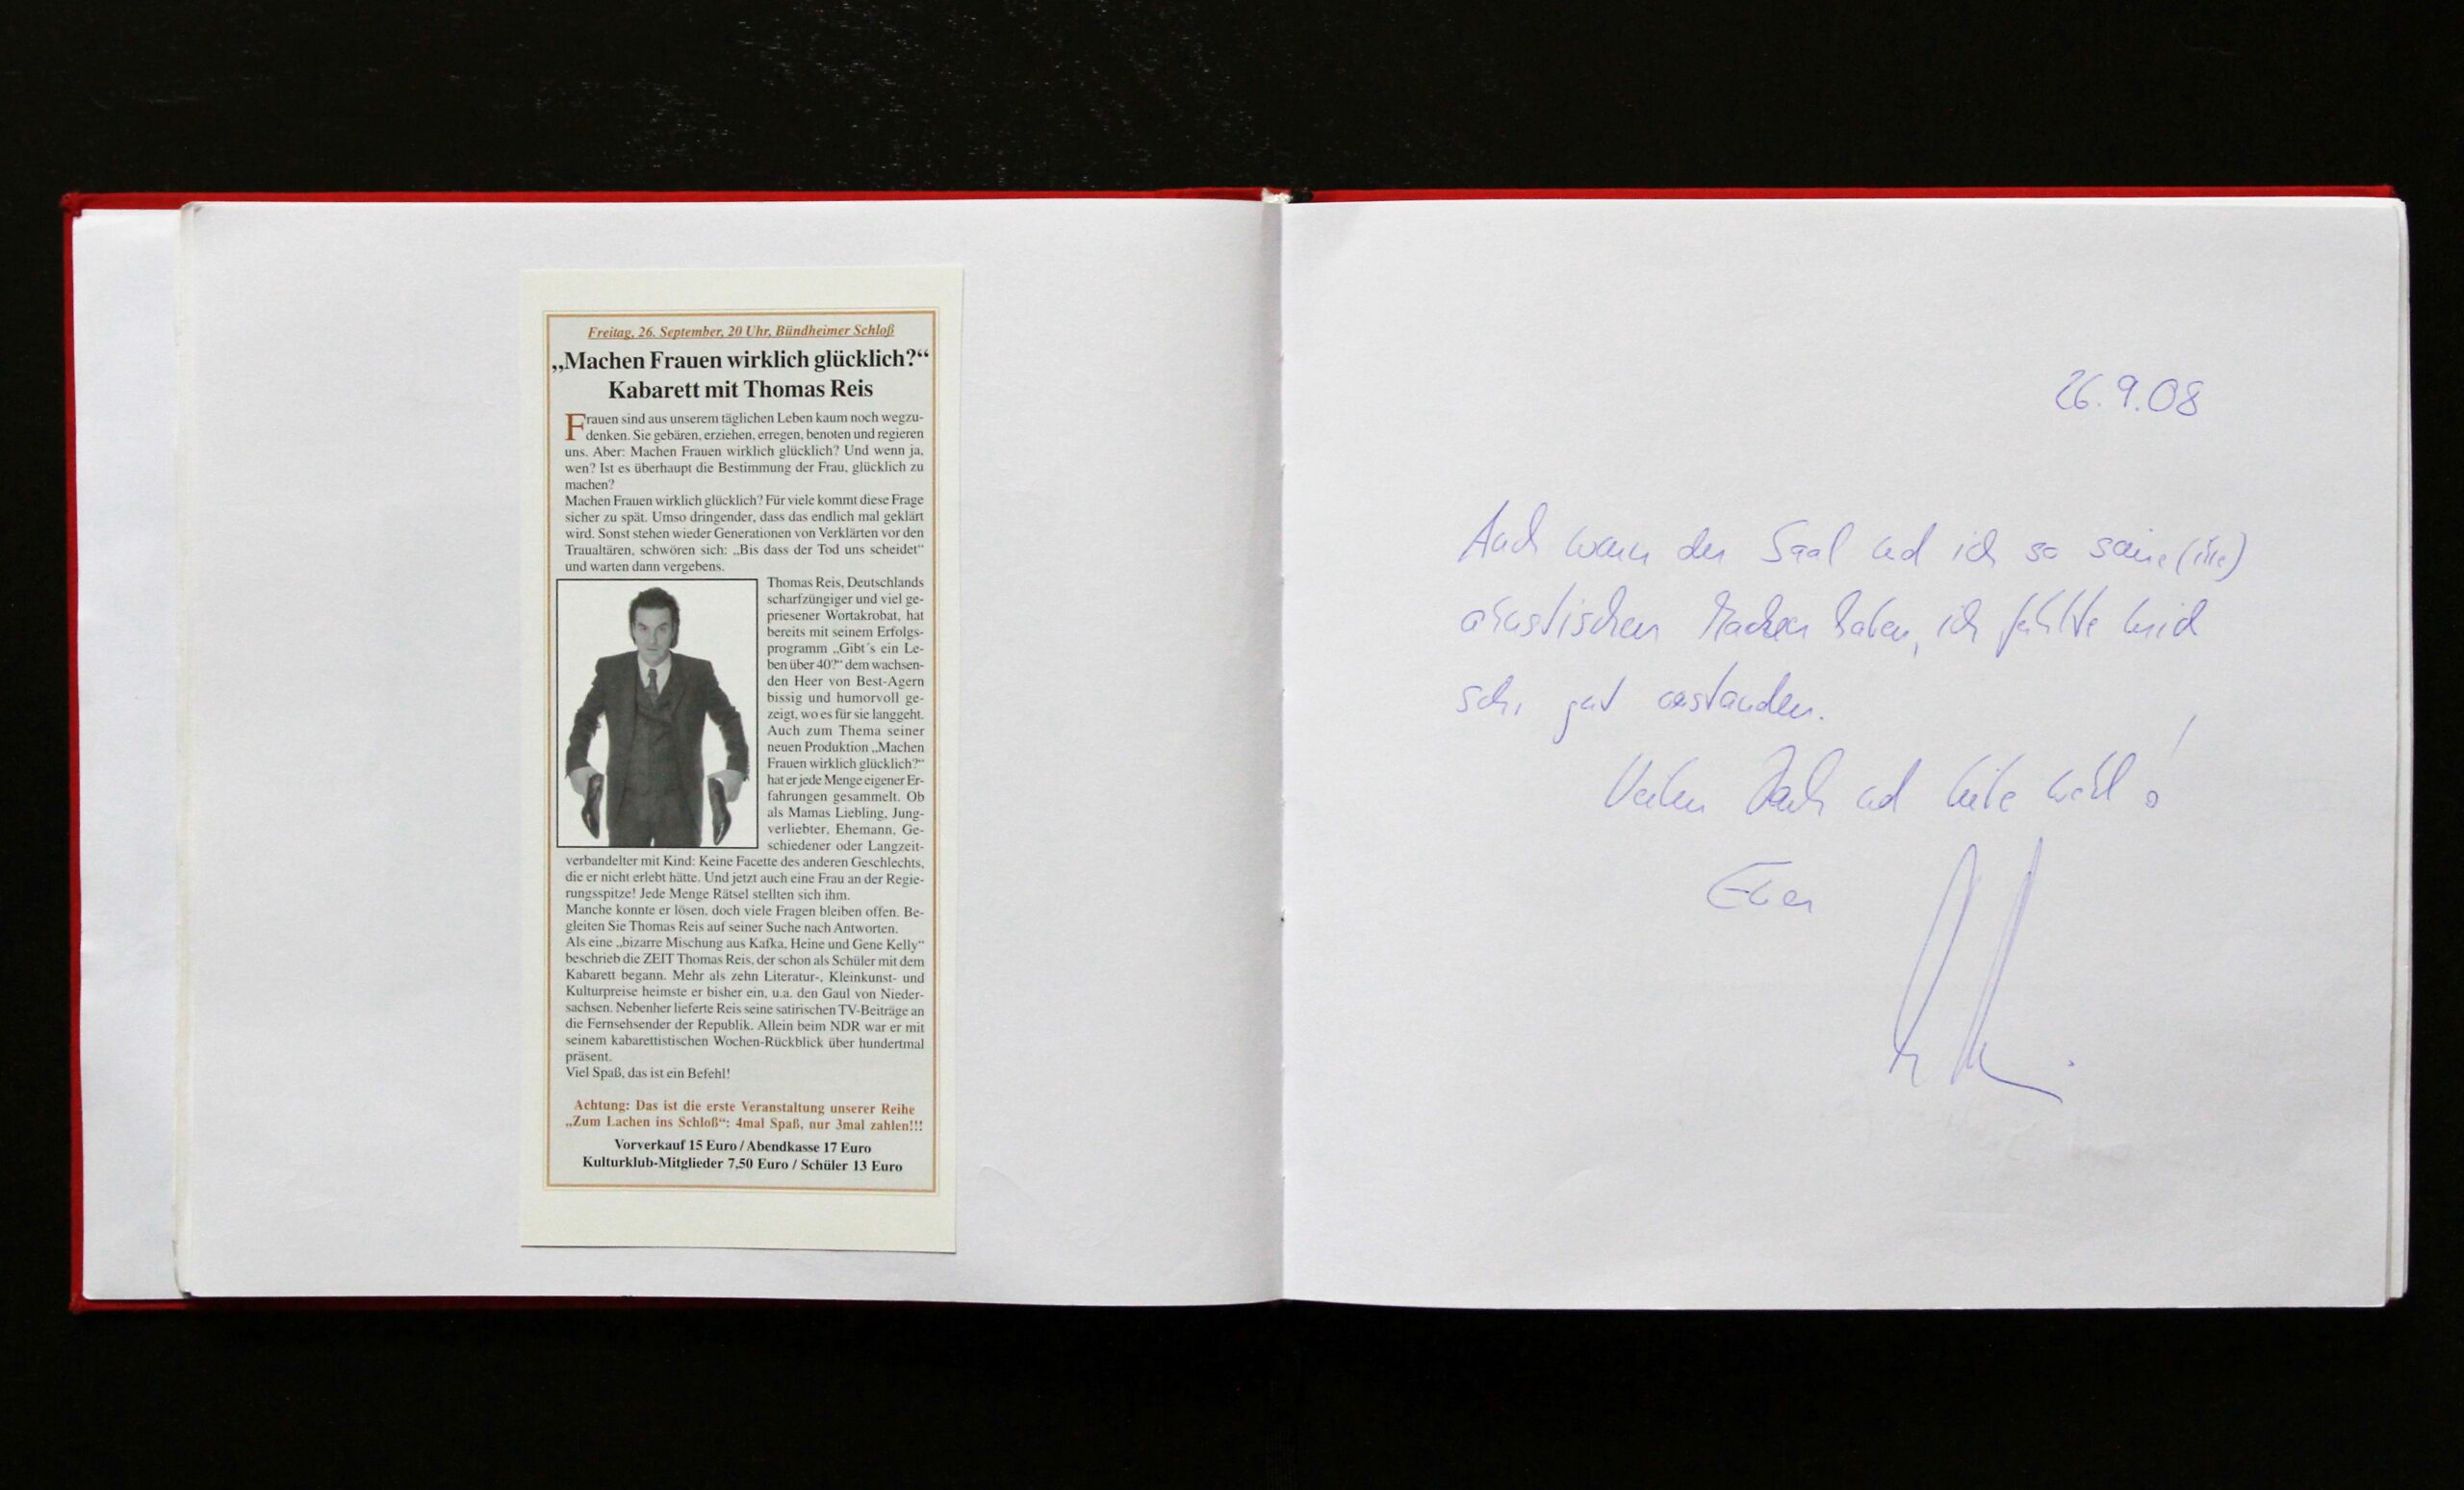 Freitag, 26. September, 20 Uhr, Bündheimer Schloß
„Machen Frauen wirklich glücklich?“
Kabarett mit Thomas Reis
Frauen sind aus unserem täglichen Leben kaum noch wegzu-
denken. Sie gebären, erziehen, erregen, benoten und regieren
uns. Aber: Machen Frauen wirklich glücklich? Und wenn ja,
wen? Ist es überhaupt die Bestimmung der Frau, glücklich zu
machen?
Machen Frauen wirklich glücklich? Für viele kommt diese Frage
sicher zu spät. Umso dringender, dass das endlich mal geklärt
wird. Sonst stehen wieder Generationen von Verklärten vor den
Traualtären, schwören sich: „Bis dass der Tod uns scheidet“
und warten dann vergebens.
Thomas Reis, Deutschlands
scharfzüngiger und viel ge-
priesener Wortakrobat, hat
bereits mit seinem Erfolgs-
programm „Gibt´s ein Le-
ben über 40?“ dem wachsen-
den Heer von Best-Agern
bissig und humorvoll ge-
zeigt, wo es für sie langgeht.
Auch zum Thema seiner
neuen Produktion „Machen
Frauen wirklich glücklich?“
hat er jede Menge eigener Er-
fahrungen gesammelt. Ob
als Mamas Liebling, Jung-
verliebter, Ehemann, Ge-
schiedener oder Langzeit-
verbandelter mit Kind: Keine Facette des anderen Geschlechts,
die er nicht erlebt hätte. Und jetzt auch eine Frau an der Regie-
rungsspitze! Jede Menge Rätsel stellten sich ihm.
Manche konnte er lösen, doch viele Fragen bleiben offen. Be-
gleiten Sie Thomas Reis auf seiner Suche nach Antworten.
Als eine „bizarre Mischung aus Kafka, Heine und Gene Kelly“
beschrieb die ZEIT Thomas Reis, der schon als Schüler mit dem
Kabarett begann. Mehr als zehn Literatur-, Kleinkunst- und
Kulturpreise heimste er bisher ein, u.a. den Gaul von Nieder-
sachsen. Nebenher lieferte Reis seine satirischen TV-Beiträge an
die Fernsehsender der Republik. Allein beim NDR war er mit
seinem kabarettistischen Wochen-Rückblick über hundertmal
präsent.
Viel Spaß, das ist ein Befehl!
Achtung: Das ist die erste Veranstaltung unserer Reihe
„Zum Lachen ins Schloß“: 4mal Spaß, nur 3mal zahlen!!!
Vorverkauf 15 Euro / Abendkasse 17 Euro
Kulturklub-Mitglieder 7,50 Euro / Schüler 13 Euro
26.9.08
Auch wenn der Saal und ich so seine (ihre)
akustischen Macken haben, ich fühlte mich
sehr gut verstanden.
Vielen Dank und bitte weil!
Euer